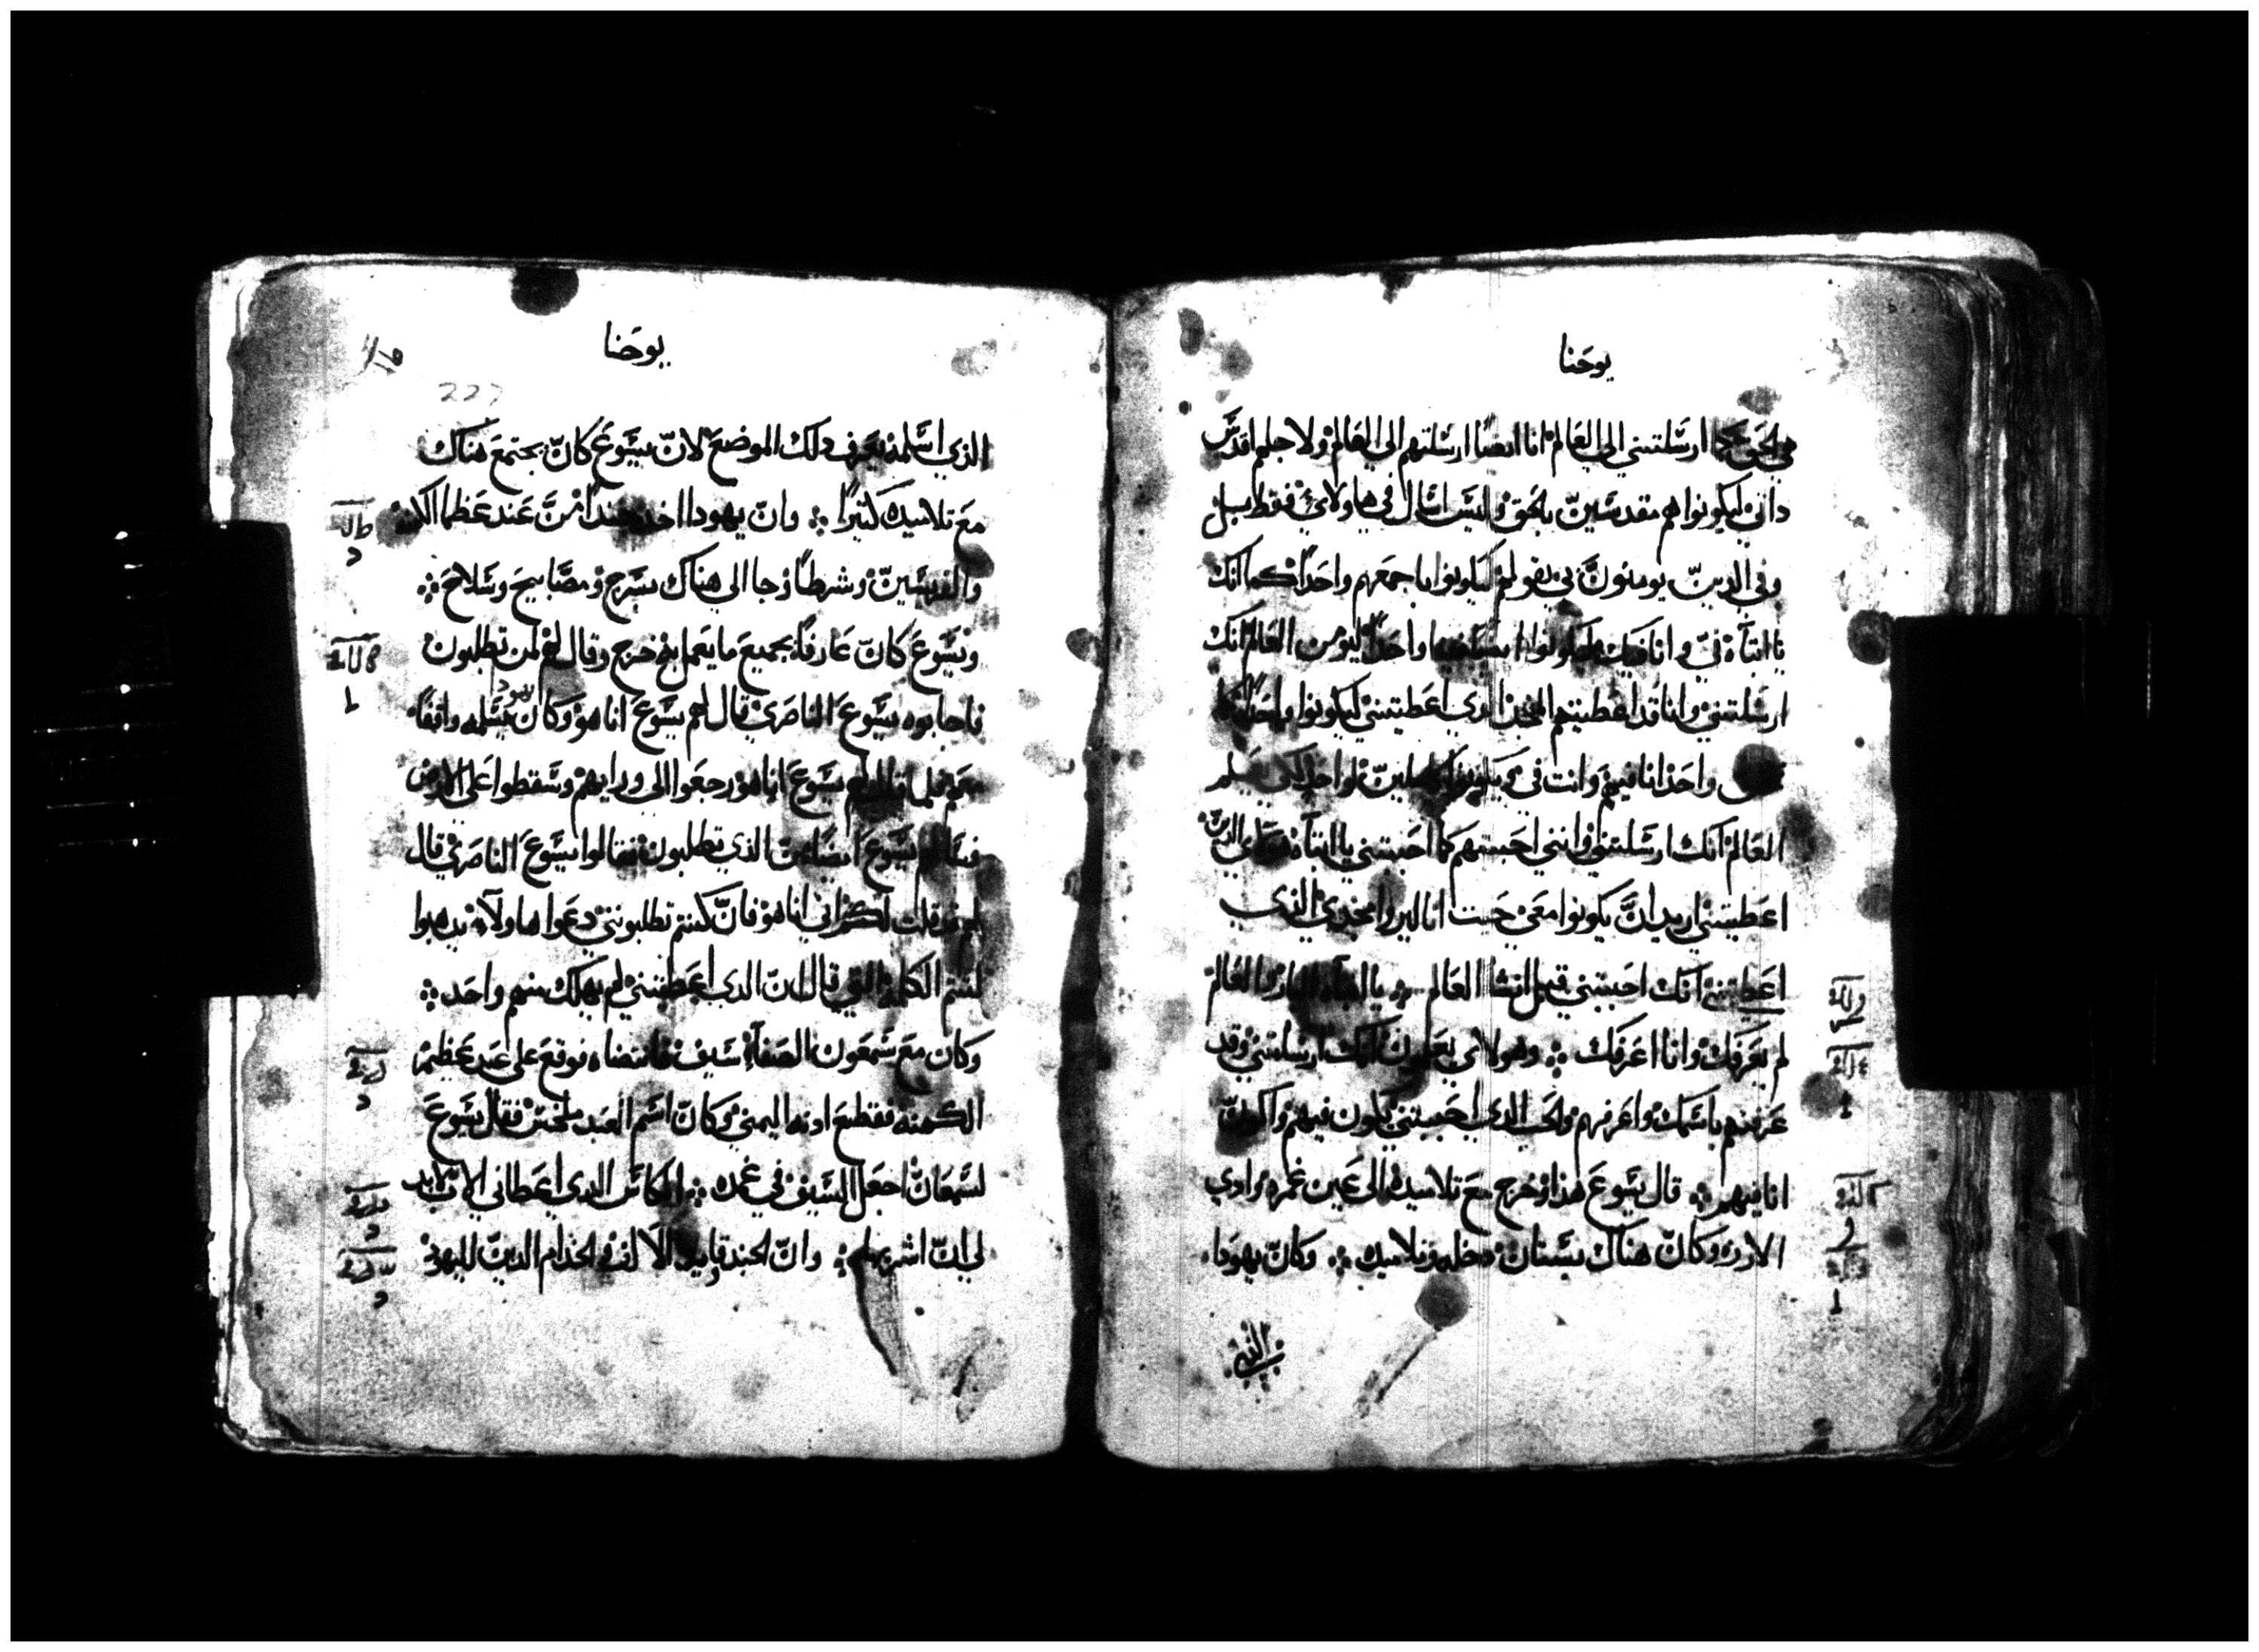 يوحنا
هي الحق كما ارسلتني الي العالم انا ايضا ارسلتهم الي العالم ولاجلهم اقدس
داتي ليكونوا هم مقدسين بالحق وليس اسال في هاولاي فقط بل
وفي الدين يومنون بي بقولهم ليكونوا باجمعهم واحدا كما انك
يا ابتاه في وانا فيك ليكونوا ايضا واحدا ليومن العالم انك
ارسلتني وانا قد اعطيتهم المجد الدي اعطيتني ليكونوا واحدا كما
نحن واحد انا فيهم وانت في ويكونوا كاملين لواحد لكي يعلم
العالم انك ارسلتني وانني احببتهم كما احببتني يا ابتاه هاولاي الدين
اعطيتني اريد ان يكونوا معي حيت انا ليروا مجدي الذي
اعطيتني انك احببتني قبل انشا العالم ۞ يا ابتاه البار والعالم
لم يعرفك وانا اعرفك ۞ وهولاي يعلمون انك ارسلتني وقد
عرفتهم باسمك واعرفهم والحب الدي احببتني يكون فيهم واكون
انا فيهم ۞ قال يسوع هذا وخرج مع تلاميده الي عبر غمره وادي
الارز وكان هناك بستان دخله وتلاميده ۞ وكان يهودا
الذي
يوحنا
227
الذي اسلمه يعرف دلك الموضع لان يسوع كان يجتمع هناك
مع تلاميده كثيرا ۞ وان يهودا اخد جندا من عند عظما الكهنه
والفريسين وشرطا وجا الي هناك بسرج ومصابيح وسلاح ۞
ويسوع كان عارفا بجميع ما يعمل به خرج وقال لهم لمن تطلبون
فاجابوه يسوع الناصري قال لهم يسوع انا هو وكان يهودا مسلمه واقفا
معهم فلما قال لهم يسوع انا هو رجعوا الي ورايهم وسقطوا علي الارض
فسالهم يسوع ايضا من الذي تطلبون فقالوا يسوع الناصري قال
لهم قد قلت لكم اني انا هو فان كنتم تطلبونني دعوا هاولاء يدهبوا
لتتم الكلمه التي قال ان الدي اعطيتني لم يهلك منهم واحد ۞
وكان مع شمعون الصفا سيف فانتضاه فوقع علي عبد عظيم
الكهنه فقطع ادنه اليمني وكان اسم العبد ملخس فقال يسوع
لسمعان اجعل السيف في غمده ۞ الكاس الدي اعطاني الاب لابد
لي ان اشربها ۞ وان الجند وقايد الالف والخدام الدين لليهود